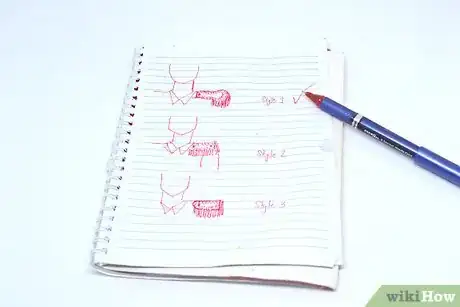 Style 1 ✓
Style 2
Style 3
wikiHow